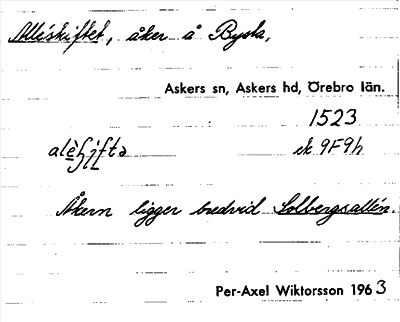 Alléskiftet, åker å Bysta,
Askers sn, Askers hd, Örebro län.
1523
ek 9F9h
Åkern ligger bredvid Solbergsallén.
Per-Axel Wiktorsson 1963